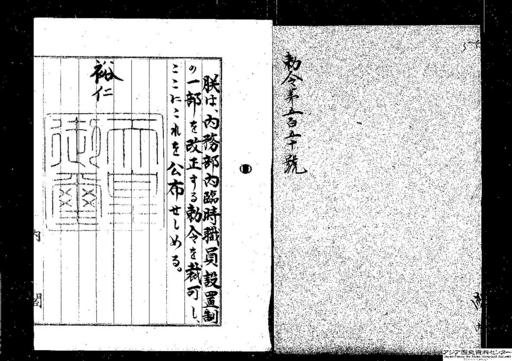 勅令第五百五十號
朕は、內務部內臨時職員設置制
の一部を改正する勅令を裁可し、
ここにこれを公布せしめる。
裕仁
天皇
御璽
內閣
アジア歴史資料センター